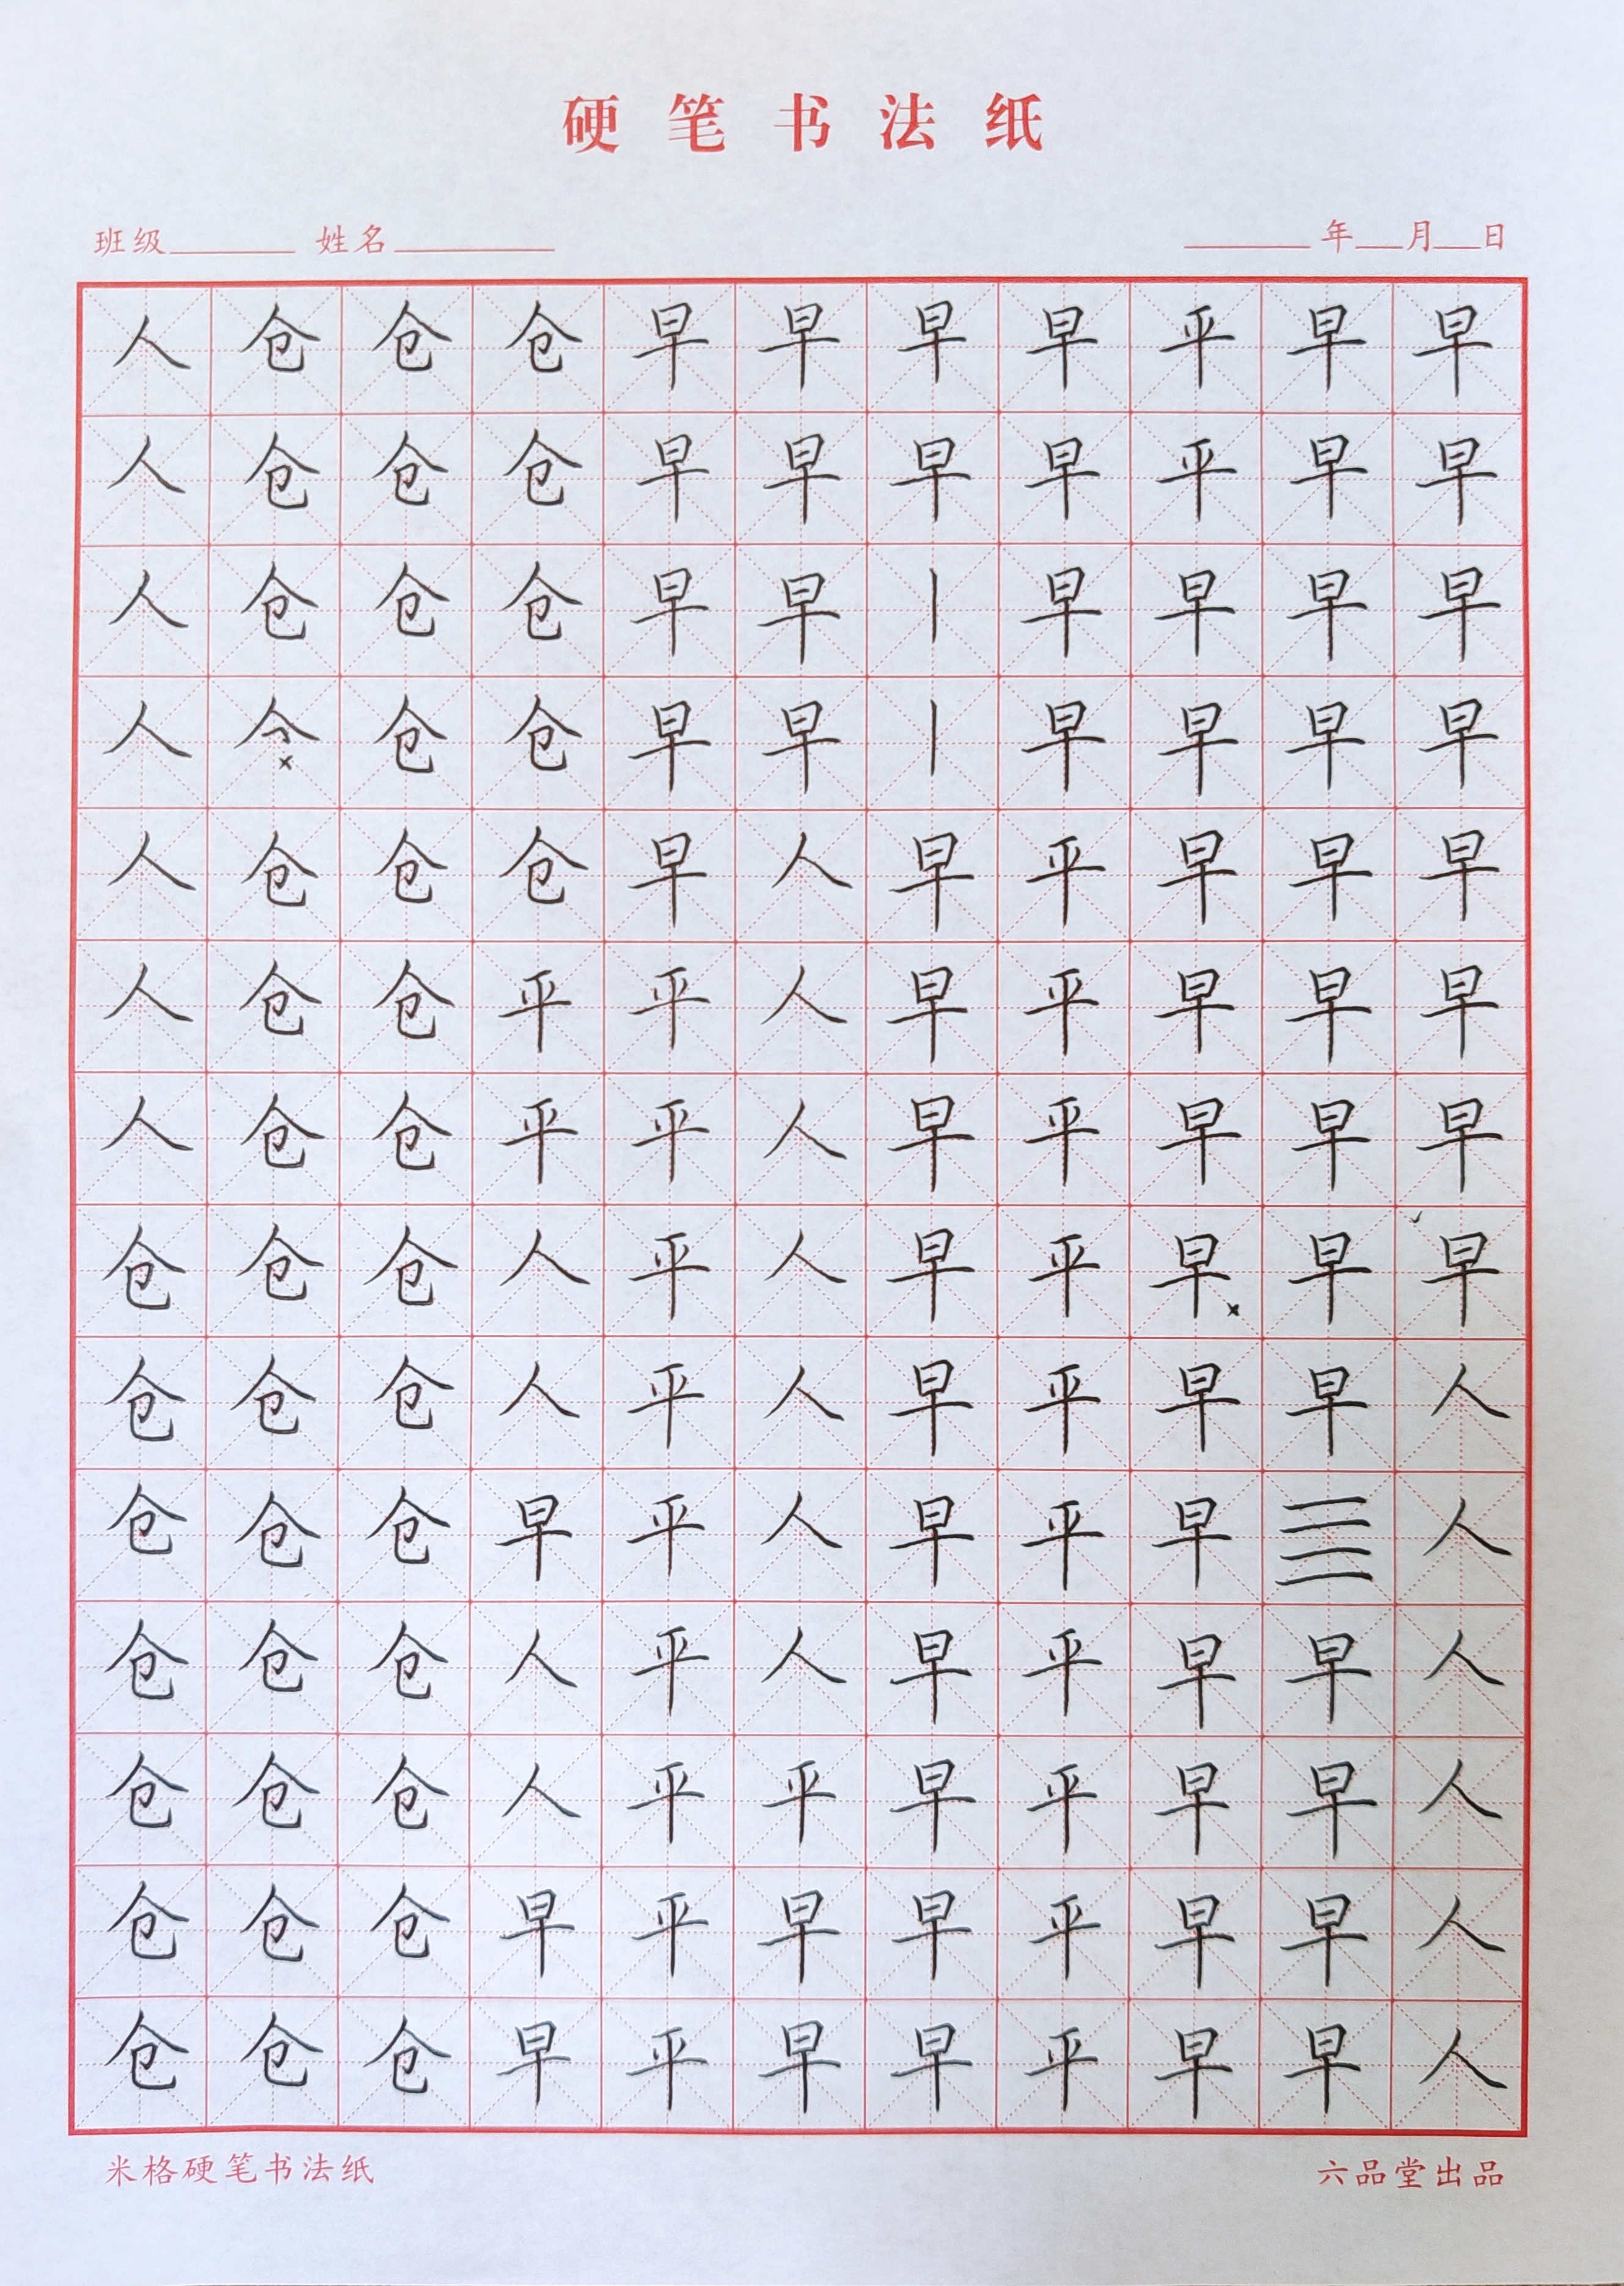 硬笔书法纸
班级 姓名 年 月 日
人仓仓仓早早早早平早早
人仓仓仓早早早早平早早
人仓仓仓早早丨早早早早
人今×仓仓早早丨早早早早
人仓仓仓早人早平早早早
人仓仓平平人早平早早早
人仓仓平平人早平早早早
仓仓仓人平人早平早×早早
仓仓仓人平人早平早早人
仓仓仓早平人早平早亖人
仓仓仓人平人早平早早人
仓仓仓人平平早平早早人
仓仓仓早平早早平早早人
仓仓仓早平早早平早早人
米格硬笔书法纸 六品堂出品